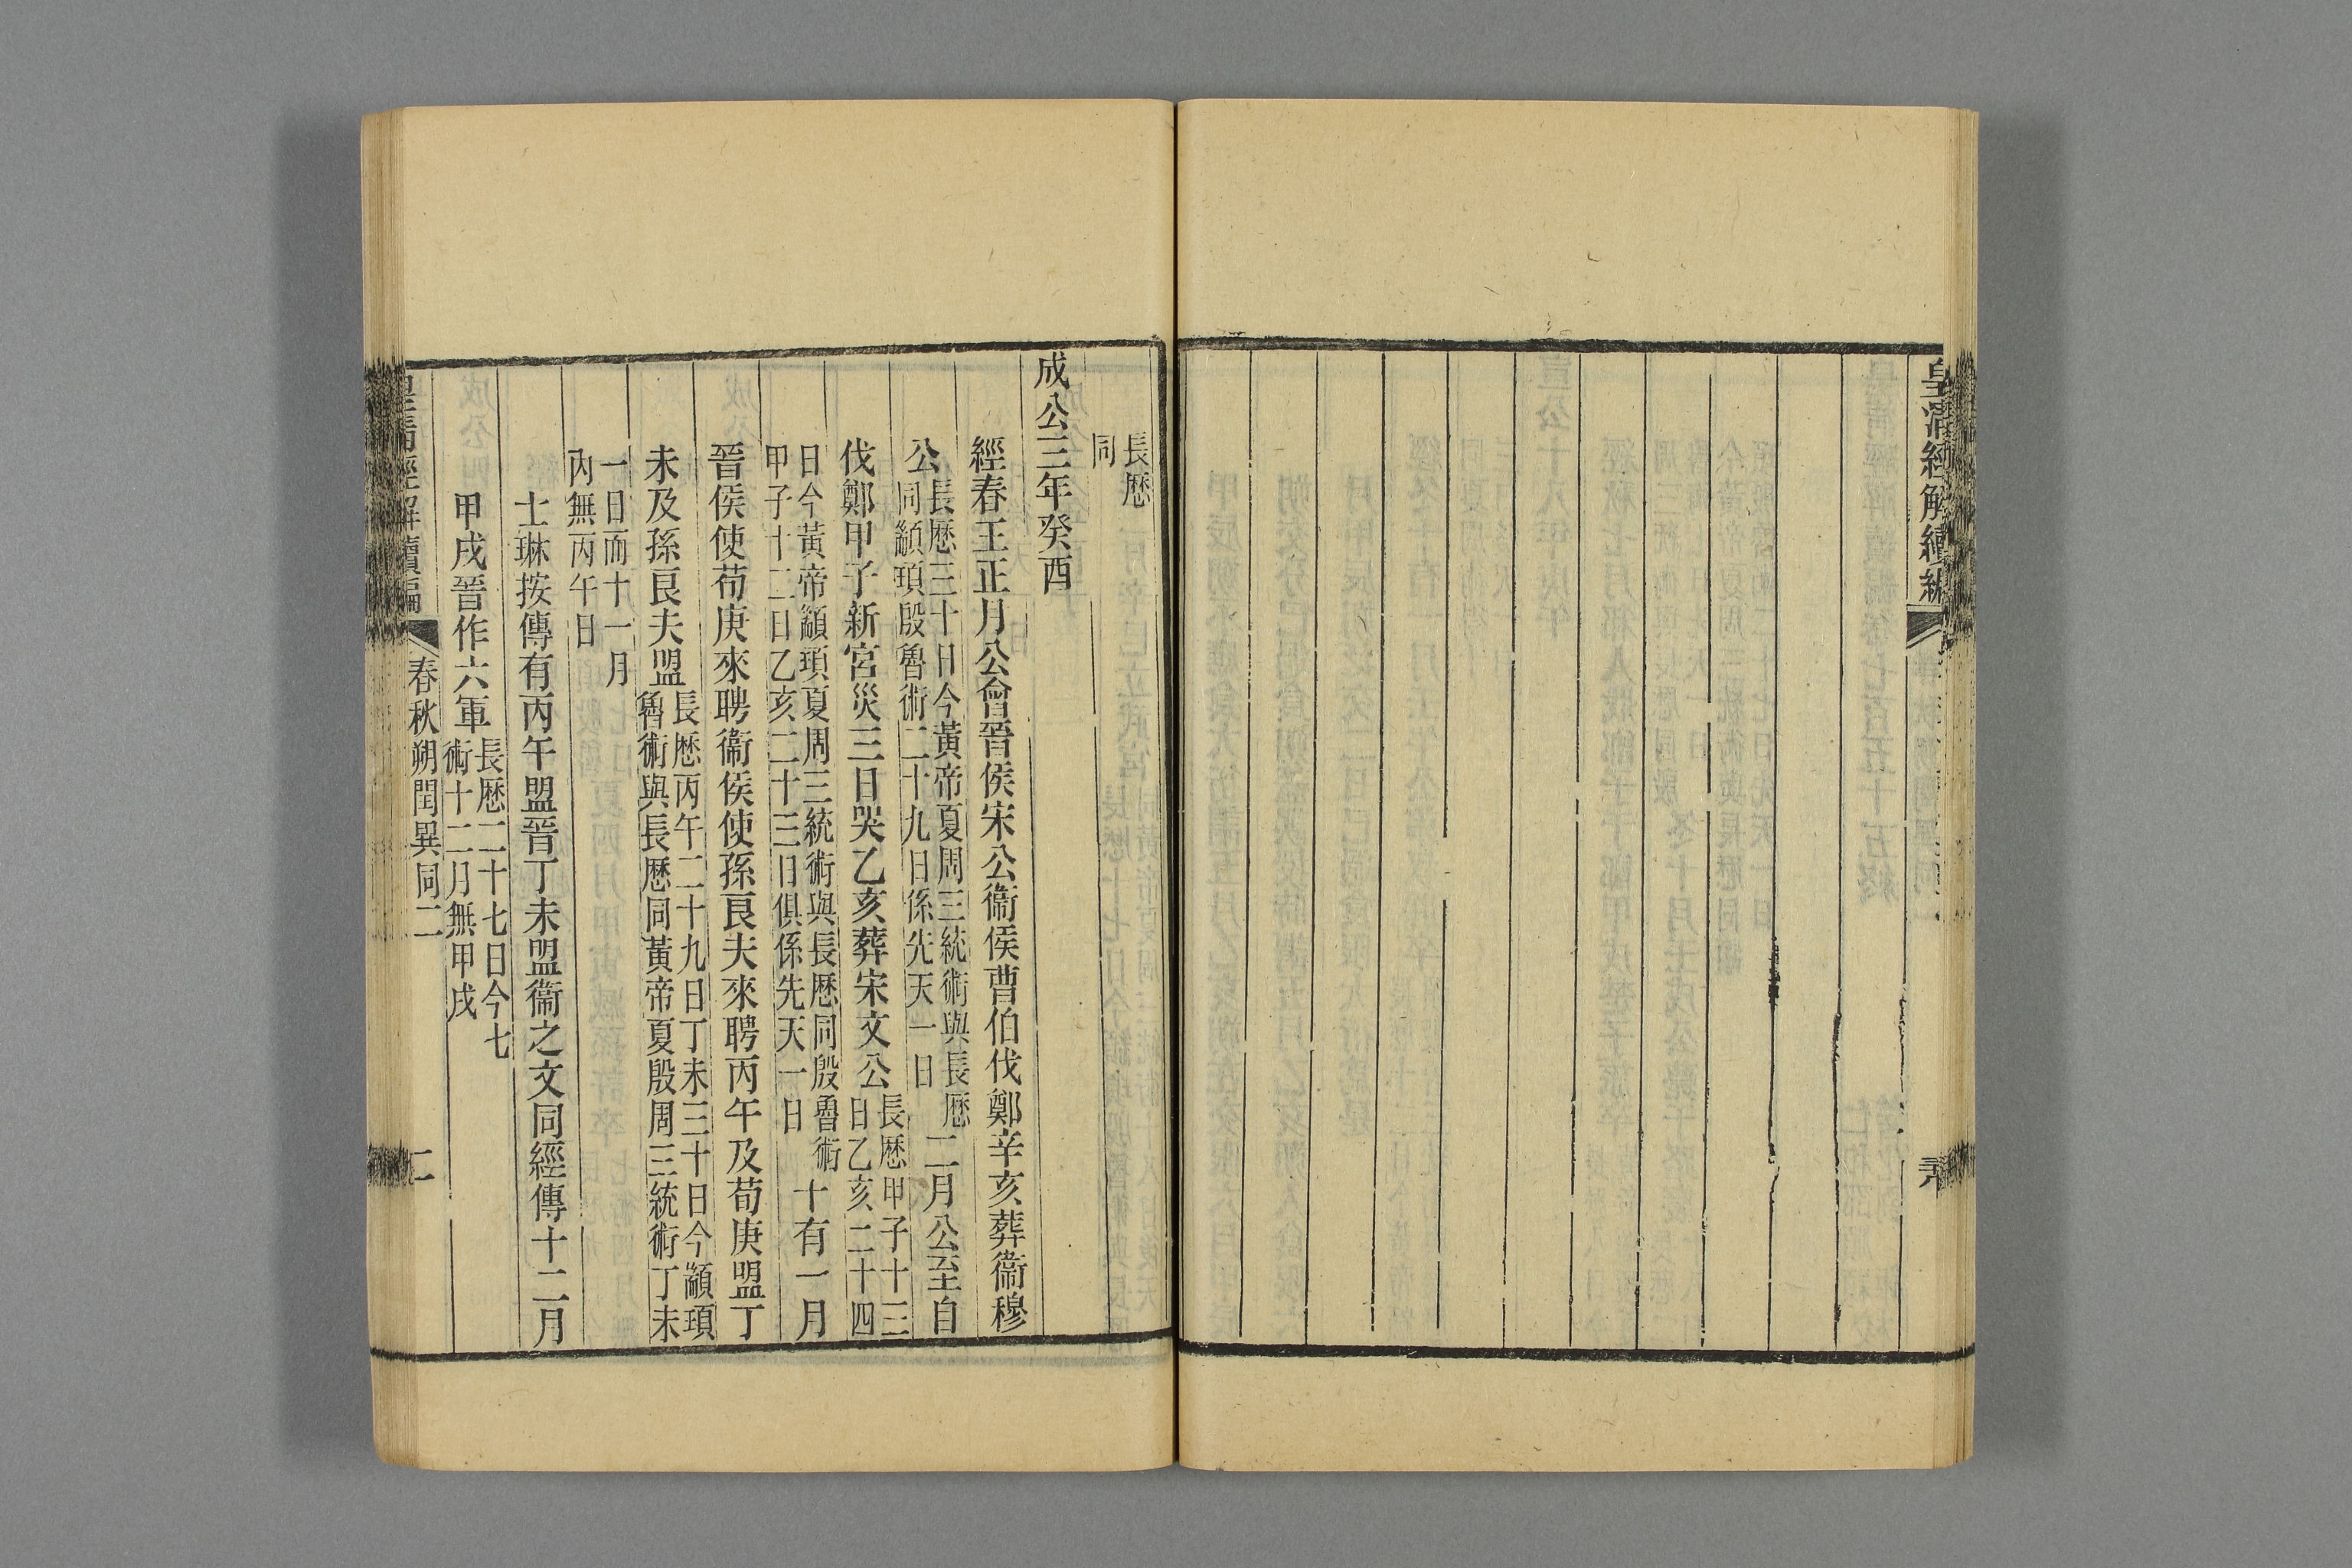 皇淸經解續編
長厯
同
成公三年癸酉
經春王正月公會晉侯宋公衞侯曹伯伐鄭辛亥葬衞穆
公長厯三十日今黃帝夏周三統術與長厯同顓頊殷魯術二十九日係先天一日二月公至自
伐鄭甲子新宮災三日哭乙亥葬宋文公長厯甲子十三日乙亥二十四
日今黃帝顓頊夏周三統術與長厯同殷魯術甲子十二日乙亥二十三日俱係先天一日十有一月
晉侯使荀庚來聘衞侯使孫良夫來聘丙午及荀庚盟丁
未及孫良夫盟長厯丙午二十九日丁未三十日今顓頊魯術與長厯同黃帝夏殷周三統術丁未
一日而十一月
內無丙午日
士琳按傳有丙午盟晉丁未盟衞之文同經傳十二月
甲戌晉作六軍長厯二十七日今七術十二月無甲戌
皇淸經解續編 春秋朔閏異同二 二